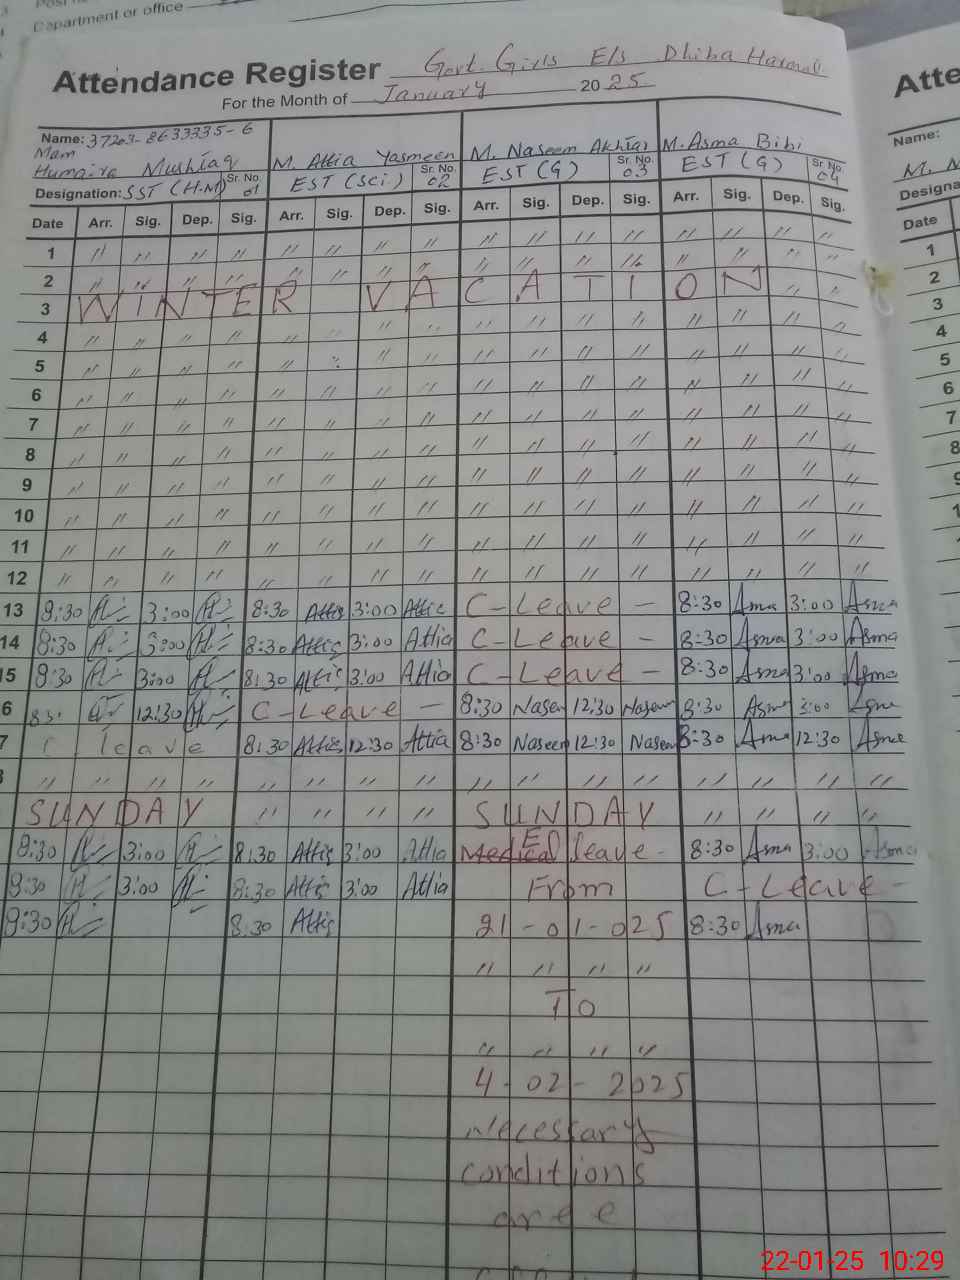 Department or office
Attendance Register Govt. Girls E/s Dhiba
For the Month of January 2025
Name: 37203-8633335-6
Mam
Humaira Mushtaq M. Attia Yasmeen M. Naseem Akhtar M. Asma Bibi
Designation: SST (H.M) Sr. No. 01 EST (Sci.) Sr. No. 02 EST (G) Sr. No. 03 EST (G) Sr. No. 04
Date Arr. Sig. Dep. Sig. Arr. Sig. Dep. Sig. Arr. Sig. Dep. Sig. Arr. Sig. Dep. Sig.
1 " " " " " " " " " " " " " " " "
2 " " " " " " " " " " " " " " " "
3 WINTER VACATION " "
4 " " " " " " " " " " " " " " " "
5 " " " " " " " " " " " " " " " "
6 " " " " " " " " " " " " " " " "
7 " " " " " " " " " " " " " " " "
8 " " " " " " " " " " " " " " " "
9 " " " " " " " " " " " " " " " "
10 " " " " " " " " " " " " " " " "
11 " " " " " " " " " " " " " " " "
12 " " " " " " " " " " " " " " " "
13 8:30 3:00 8:30 Attia 3:00 Attia C-Leave - 8:30 Asma 3:00 Asma
14 8:30 3:00 8:30 Attia 3:00 Attia C-Leave - 8:30 Asma 3:00 Asma
15 8:30 3:00 8:30 Attia 3:00 Attia C-Leave - 8:30 Asma 3:00 Asma
6 12:30 C-Leave - 8:30 Naseem 12:30 Naseem 8:30 Asma 3:00 Asma
7 C leave 8:30 Attia 12:30 Attia 8:30 Naseem 12:30 Naseem 8:30 Asma 12:30 Asma
" " " " " " " " " " " " " " " "
SUNDAY " " " " SUNDAY " " " "
8:30 3:00 8:30 Attia 3:00 Attia Medical E leave - 8:30 Asma 3:00 Asma
8:30 3:00 8:30 Attia 3:00 Attia From C-Leave -
8:30 8:30 Attia 21-01-025 8:30 Asma
" " " "
To
" " " "
4-02-2025
necessary
conditions
are
Atte
Name:
M.
Designa
Date
1
2
3
4
5
6
7
8
9
1
22-01-25 10:29